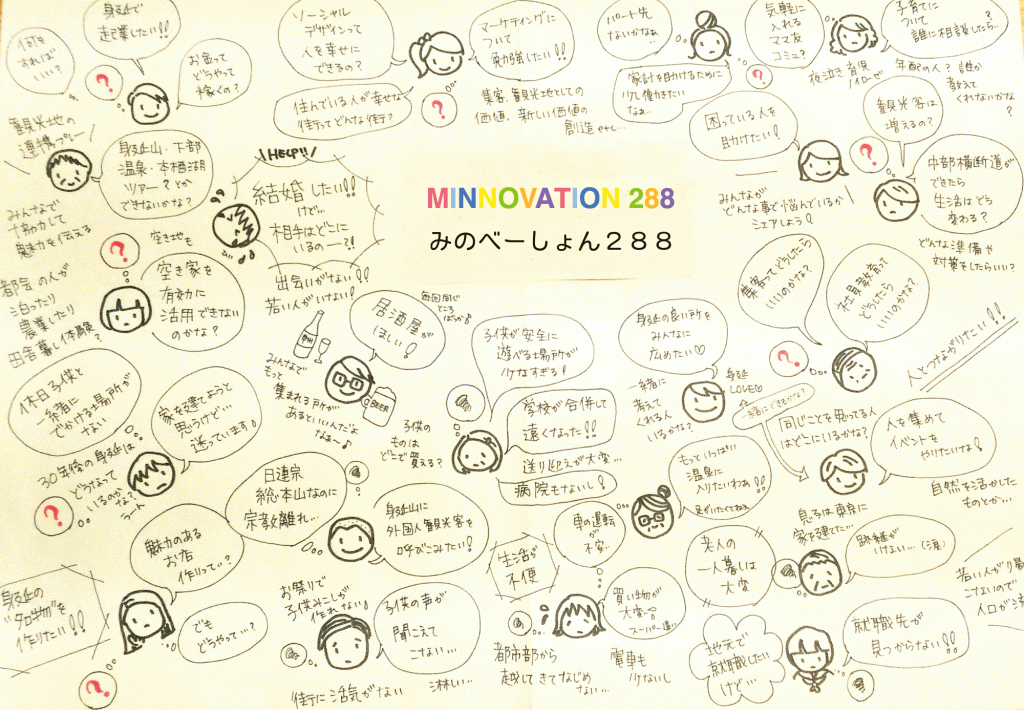 身延で
起業したい!!
何を
すれば
いい?
お金って
どうやって
稼ぐの?
ソーシャル
デザインって
人を幸せに
できるの?
マーケティングに
ついて
勉強したい!!
住んでいる人が幸せな
街ってどんな街?
集客、観光地としての
価値、新しい価値の
創造etc...
パート先
ないかなぁ..
家計を助けるために
少し働きたい
なぁ..
気軽に
入れる
ママ友
コミュ?
子育てに
ついて
誰に相談したら..?
夜泣き 育児
ノイローゼ
年配の人? 誰か
教えて
くれないかな
?
観光客は
増えるの?
困っている人を
助けたい!
みんなが
どんな事で悩んでいるか
シェアしよう!
中部横断道が
できたら
生活はどう
変わる?
どんな準備や
対策をしたらいい?
観光地の
連携プレー!
身延山・下部
温泉・本栖湖
ツアー?とか
できないかな?
みんなで
協力して
魅力を伝える
\HELP!!/
結婚したい!!
けど...
相手はどこに
いるのー?!
出会いがない!!
若い人がいない!
MINNOVATION 288
みのべーしょん288
空き地も
空き家を
有効に
活用できない
のかな?
都会の人が
泊ったり
農業したり
田舎暮し体験?
毎回同じ
ところ
ばっか
居酒屋が
ほしい!
みんなで
もっと
集まれる所が
あるといいんだよ
なぁ〜♪
BEER
子供が安全に
遊べる場所が
少なすぎる!
学校が合併して
遠くなった!!
送り迎えが大変...
病院もないし!
子供の
ものは
どこで買える?
身延の良い所を
みんなに
広めたい♡
身延
LOVE♡
一緒に
考えて
くれる人
いるかな?
集客ってどうしたら
いいのかな?
社員教育って
どうしたら
いいのかな?
人とつながりたい!!
一緒にできるかな?
同じことを思ってる人
はどこにいるかな?
人を集めて
イベントを
やりたいな!
自然を活かした
ものとか...
休日子供と
一緒に
でかける場所が
ない
家を建てようと
思うけど...
迷っています!
30年後の身延は
どうなって
いるのかな?
日連宗
総本山なのに
宗教離れ...
身延山に
外国人観光客を
呼びこみたい!
もっといっぱい
温泉に
入りたいわぁ!!
車の運転
が
不安..
生活が
不便
老人の
一人暮しは
大変
息子は東京に
家を建てた...
跡継が
いない...(涙)
魅力のある
お店
作りって?
でも
どうやって...?
身延の
“名物”を
作りたい!!
お祭りで
子供みこしが
作れない!
子供の声が
聞こえて
こない...
街に活気がない
淋しい...
買い物が
大変..
スーパー遠い
都市部から
越してきてなじめ
ない...
電車も
少ないし
地元で
就職したい
けど...
就職先が
見つからない!!
若い人が
こないので
人口が